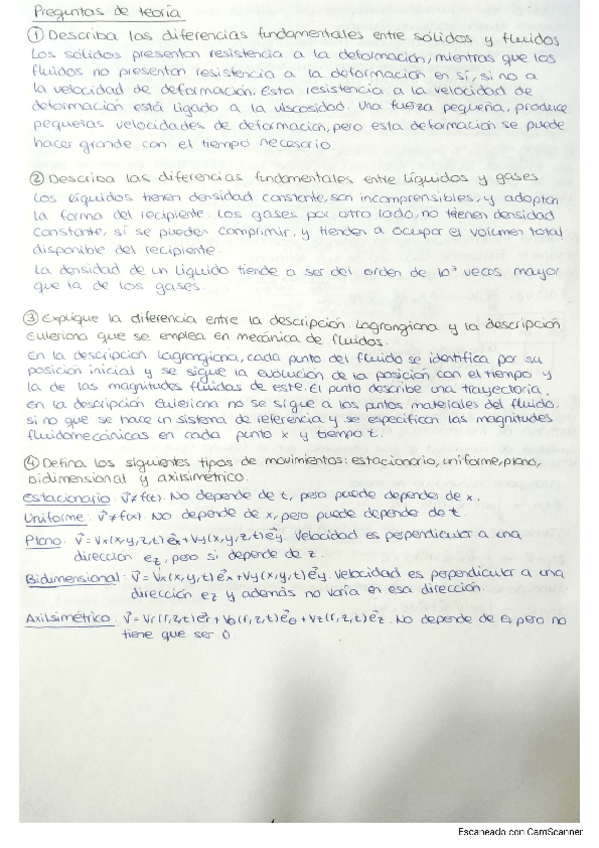 Preguntas de teoría
① Describa las diferencias fundamentales entre sólidos y fluidos
Los sólidos presentan resistencia a la deformación, mientras que los
fluidos no presentan resistencia a la deformación en sí, si no a
la velocidad de deformación. Esta resistencia a la velocidad de
deformación está ligado a la viscosidad. Una fuerza pequeña, produce
pequeñas velocidades de deformación, pero esta deformación se puede
hacer grande con el tiempo necesario.
② Describa las diferencias fundamentales entre líquidos y gases
Los líquidos tienen densidad constante, son incomprensibles, y adoptan
la forma del recipiente. Los gases por otro lado, no tienen densidad
constante, sí se pueden comprimir, y tienden a ocupar el volumen total
disponible del recipiente.
La densidad de un líquido tiende a ser del orden de 10³ veces mayor
que la de los gases.
③ Explique la diferencia entre la descripción Lagrangiana y la descripción
Euleriana que se emplea en mecánica de fluidos.
En la descripción Lagrangiana, cada punto del fluido se identifica por su
posición inicial y se sigue la evolución de la posición con el tiempo y
la de las magnitudes fluidas de este. El punto describe una trayectoria.
En la descripción Euleriana no se sigue a los puntos materiales del fluido,
si no que se hace un sistema de referencia y se especifican las magnitudes
fluidomecánicas en cada punto x y tiempo t.
④ Defina los siguientes tipos de movimientos: estacionario, uniforme, plano,
bidimensional y axilsimétrico.
Estacionario: v⃗≠f(t). No depende de t, pero puede depender de x.
Uniforme: v⃗≠f(x). No depende de x, pero puede depender de t.
Plano: v⃗=Vx(x,y,z,t)e⃗x+Vy(x,y,z,t)e⃗y. Velocidad es perpendicular a una
dirección ez, pero sí depende de z.
Bidimensional: v⃗=Vx(x,y,t)e⃗x+Vy(x,y,t)e⃗y. Velocidad es perpendicular a una
dirección ez y además no varía en esa dirección.
Axilsimétrico: v⃗=Vr(r,z,t)e⃗r+Vθ(r,z,t)e⃗θ+Vz(r,z,t)e⃗z. No depende de θ, pero no
tiene que ser 0.
Escaneado con CamScanner